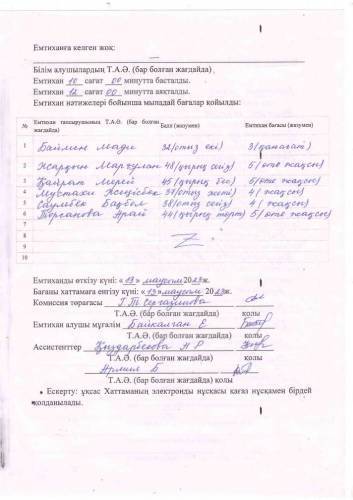 Емтиханға келген жоқ:
Білім алушылардың Т.А.Ә. (бар болған жағдайда)
Емтихан 10 сағат 00 минутта басталды.
Емтихан 12 сағат 00 минутта аяқталды.
Емтихан нәтижелері бойынша мынадай бағалар қойылды:
№ Емтихан тапсырушының Т.А.Ә. (бар болған жағдайда) Балл (жазумен) Емтихан бағасы (жазумен)
1 Баймин Мади 32 (отыз екі) 3 (қанағат)
2 Жарқын Марғулан 48 (қырық сегіз) 5 (өте жақсы)
3 Қайрат Мерей 45 (қырық бес) 5 (өте жақсы)
4 Мустажи 37 (отыз жеті) 4 (жақсы)
5 Саулебек 38 (отыз сегіз) 4 (жақсы)
6 Арай 44 (қырық төрт) 5 (өте жақсы)
7
8
9
10
Емтиханды өткізу күні: «13» маусым 2023ж.
Бағаны хаттамаға енгізу күні: «13» маусым 2023ж.
Комиссия төрағасы Г.Т.
Т.А.Ә. (бар болған жағдайда) қолы
Емтихан алушы мұғалім Байкалган Е
Т.А.Ә. (бар болған жағдайда) қолы
Ассистенттер Қыдырбекова А Р
Т.А.Ә. (бар болған жағдайда) қолы
Б
Т.А.Ә. (бар болған жағдайда) қолы
• Ескерту: ұқсас Хаттаманың электронды нұсқасы қағаз нұсқамен бірдей
қолданылады.